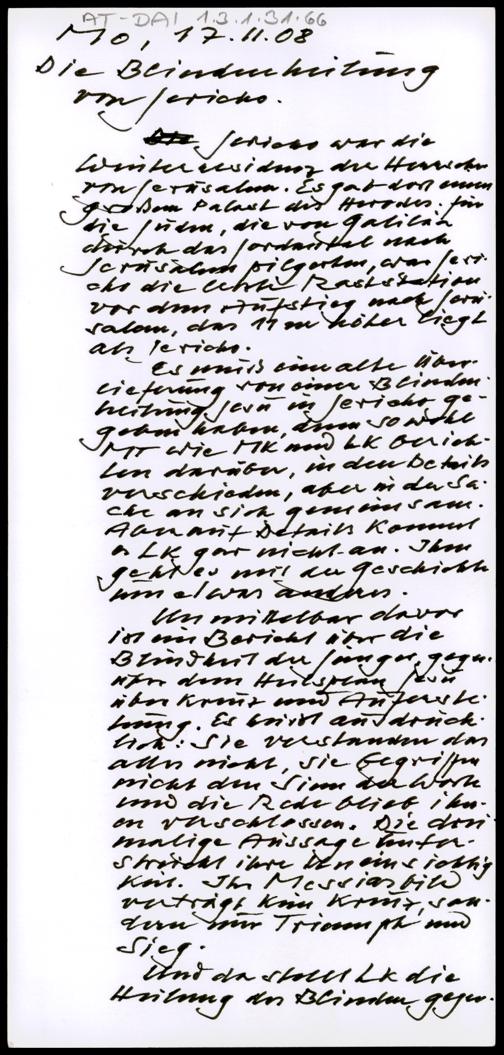 AT-DAI 1.3.1.31.66
Mo, 17.11.08
Die Blindenheilung
von Jericho.
Jericho war die
Winterresidenz der Herrscher
von Jerusalem. Es gab dort einen
großen Palast des Herodes. Für
die Juden, die von Galiläa
durch das Jordantal nach
Jerusalem pilgerten, war Jeri-
cho die letzte Raststation
vor dem Aufstieg nach Jeru-
salem, das 11 m höher liegt
als Jericho.
Es muß eine alte Über-
lieferung von einer Blinden-
heilung Jesu in Jericho ge-
geben haben, denn sowohl
MT wie MK und LK berich-
ten darüber, in den Details
verschieden, aber in der Sa-
che an sich gemeinsam.
Aber auf Details kommt
es LK gar nicht an. Ihm
geht es mit der Geschichte
um etwas anderes.
Unmittelbar davor
ist ein Bericht über die
Blindheit der Jünger gegen-
über dem Heilsplan Jesu
über Kreuz und Auferste-
hung. Es heißt ausdrück-
lich: Sie verstanden das
alles nicht, sie begriffen
nicht den Sinn der Worte
und die Rede blieb ihn-
en verschlossen. Die drei
malige Aussage unter-
streicht ihre Uneinsichtig
keit. Ihr Messiasbild
verträgt kein Kreuz, son-
dern nur Triumph und
Sieg.
Und da stellt LK die
Heilung des Blinden gegen-